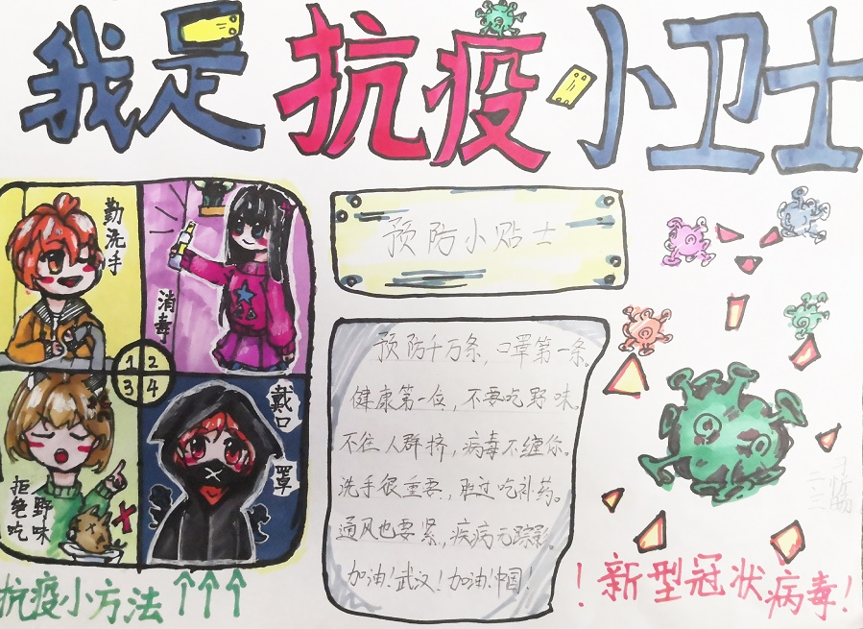 我是抗疫小卫士
勤洗手
消毒
1 2
3 4
拒绝吃
野味
戴口
罩
抗疫小方法↑↑↑
预防小贴士
预防千万条,口罩第一条。
健康第一位,不要吃野味。
不往人群挤,病毒不缠你。
洗手很重要,胜过吃补药。
通风也要紧,疾病无踪影。
加油!武汉!加油!中国!
!新型冠状病毒!